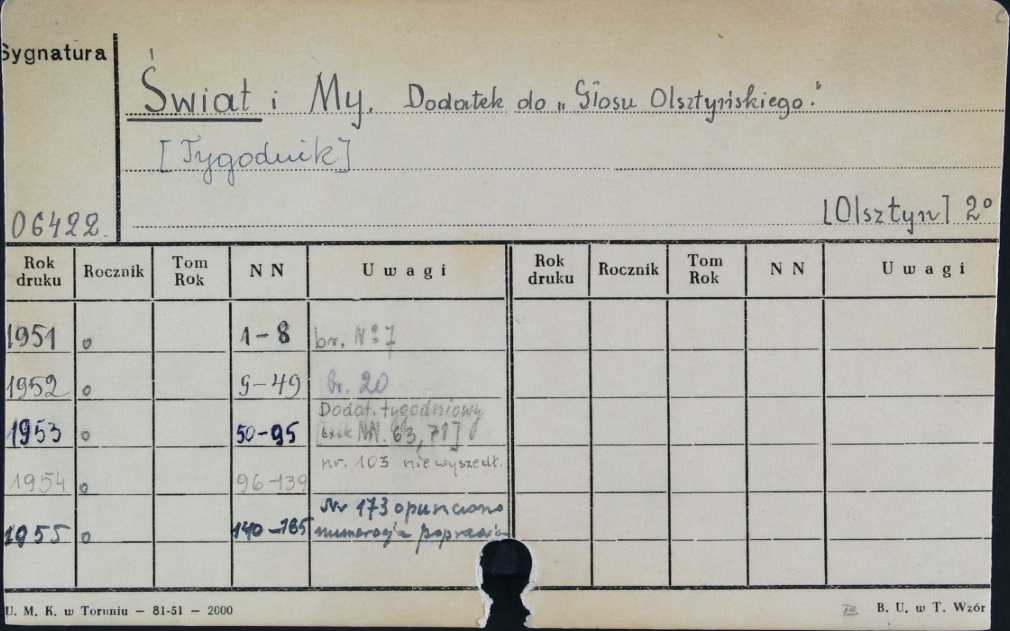 Sygnatura
Świat i My. Dodatek do „Głosu Olsztyńskiego."
[Tygodnik]
06422.
[Olsztyn] 2°
Rok druku Rocznik Tom Rok N N Uwagi Rok druku Rocznik Tom Rok N N Uwagi
1951 o 1-8 br. N° 7
1952 o 9-49 br. 20
Dodat. tygodniowy
1953 o 50-95 [brak NN. 63, 71]
nr. 103 nie wyszedł.
1954 o 96-139
Nr 173 opuszczono
1955 o 140-185 numeracja
U. M. K. w Toruniu — 81-51 — 2000
B. U. w T. Wzór